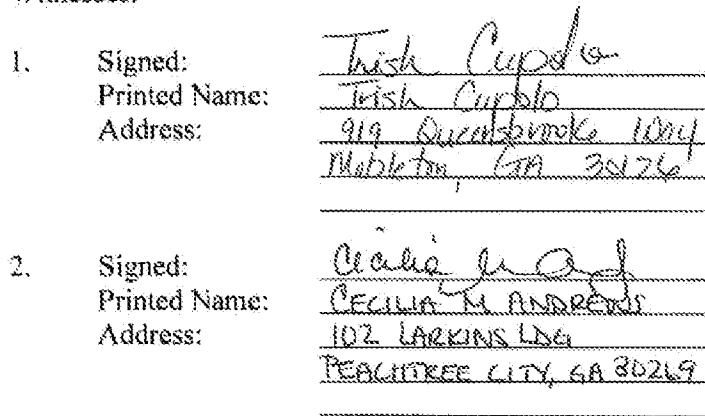 Witnesses:
1. Signed: Trish Cupolo
Printed Name: Trish Cupolo
Address: 919 Queensbrooke Way
Mableton, GA 30126
2. Signed: Cecilia M
Printed Name: CECILIA M ANDREWS
Address: 102 LARKINS LDG
PEACHTREE CITY, GA 30269